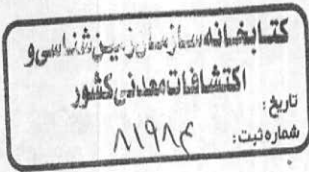 کتابخانه سازمان زمین‌شناسی و
اکتشافات معدنی کشور
تاریخ:
شماره ثبت: